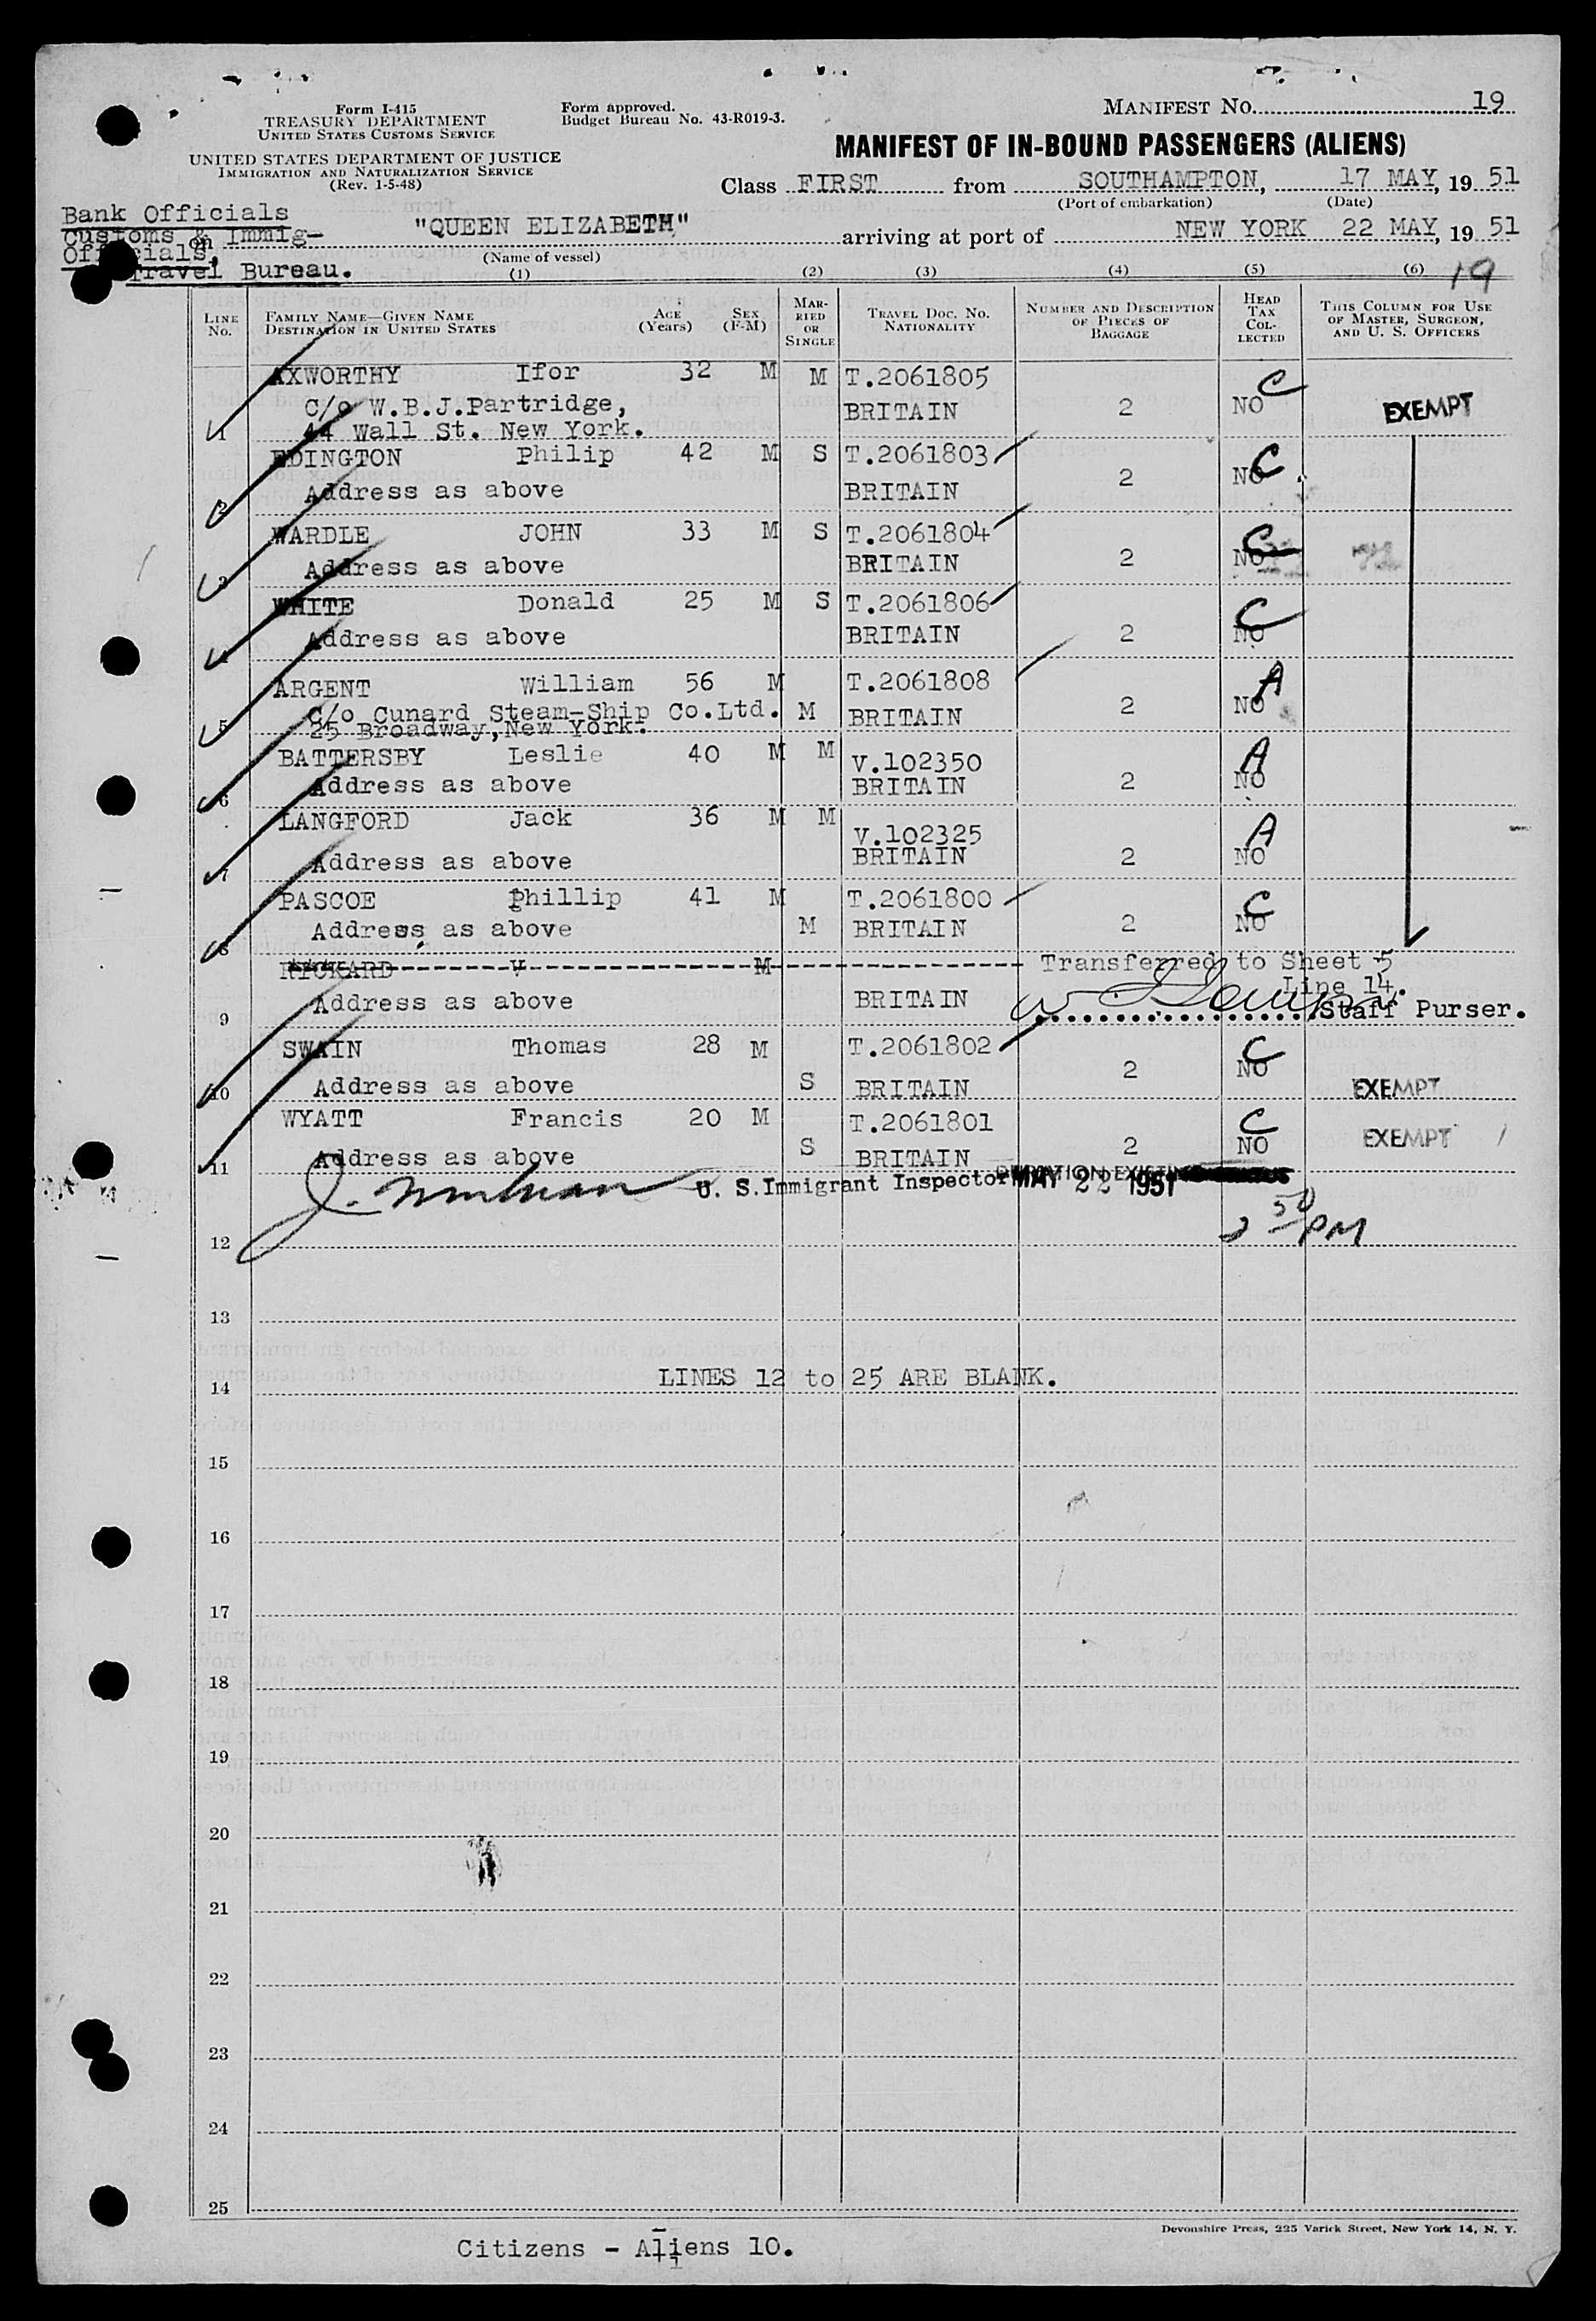 Form I-415
TREASURY DEPARTMENT
UNITED STATES CUSTOMS SERVICE
UNITED STATES DEPARTMENT OF JUSTICE
IMMIGRATION AND NATURALIZATION SERVICE
(Rev. 1-5-48)
Form approved.
Budget Bureau No. 43-R019-3.
MANIFEST NO. 19
MANIFEST OF IN-BOUND PASSENGERS (ALIENS)
Class FIRST from SOUTHAMPTON, 17 MAY, 19 51
(Port of embarkation) (Date)
Bank Officials
Customs & Immig-
Officials,
Travel Bureau.
on "QUEEN ELIZABETH" arriving at port of NEW YORK 22 MAY, 19 51
(Name of vessel)
(1) (2) (3) (4) (5) (6) 19
LINE No. FAMILY NAME—GIVEN NAME DESTINATION IN UNITED STATES AGE (Years) SEX (F-M) MARRIED OR SINGLE TRAVEL DOC. NO. NATIONALITY NUMBER AND DESCRIPTION OF PIECES OF BAGGAGE HEAD TAX COLLECTED THIS COLUMN FOR USE OF MASTER, SURGEON, AND U. S. OFFICERS
AXWORTHY Ifor 32 M M T.2061805 C
C/o W.B.J.Partridge, BRITAIN 2 NO EXEMPT
1 44 Wall St. New York.
EDINGTON Philip 42 M S T.2061803 C
2 Address as above BRITAIN 2 NO
WARDLE JOHN 33 M S T.2061804 C
3 Address as above BRITAIN 2 NO
WHITE Donald 25 M S T.2061806 C
4 Address as above BRITAIN 2 NO
ARGENT William 56 M T.2061808 A
C/o Cunard Steam-Ship Co.Ltd. M BRITAIN 2 NO
5 25 Broadway,New York.
BATTERSBY Leslie 40 M M V.102350 A
6 Address as above BRITAIN 2 NO
LANGFORD Jack 36 M M V.102325 A
7 Address as above BRITAIN 2 NO
PASCOE Phillip 41 M T.2061800 C
8 Address as above M BRITAIN 2 NO
RICKARD V M Transferred to Sheet 5
Line 14.
9 Address as above BRITAIN Staff Purser.
SWAIN Thomas 28 M T.2061802 C
10 Address as above S BRITAIN 2 NO EXEMPT
WYATT Francis 20 M T.2061801 C
11 Address as above S BRITAIN 2 NO EXEMPT
U. S. Immigrant Inspector MAY 22 1951
2 50 PM
12
13
14 LINES 12 to 25 ARE BLANK.
15
16
17
18
19
20
21
22
23
24
25
Devonshire Press, 225 Varick Street, New York 14, N. Y.
Citizens - Aliens 10.